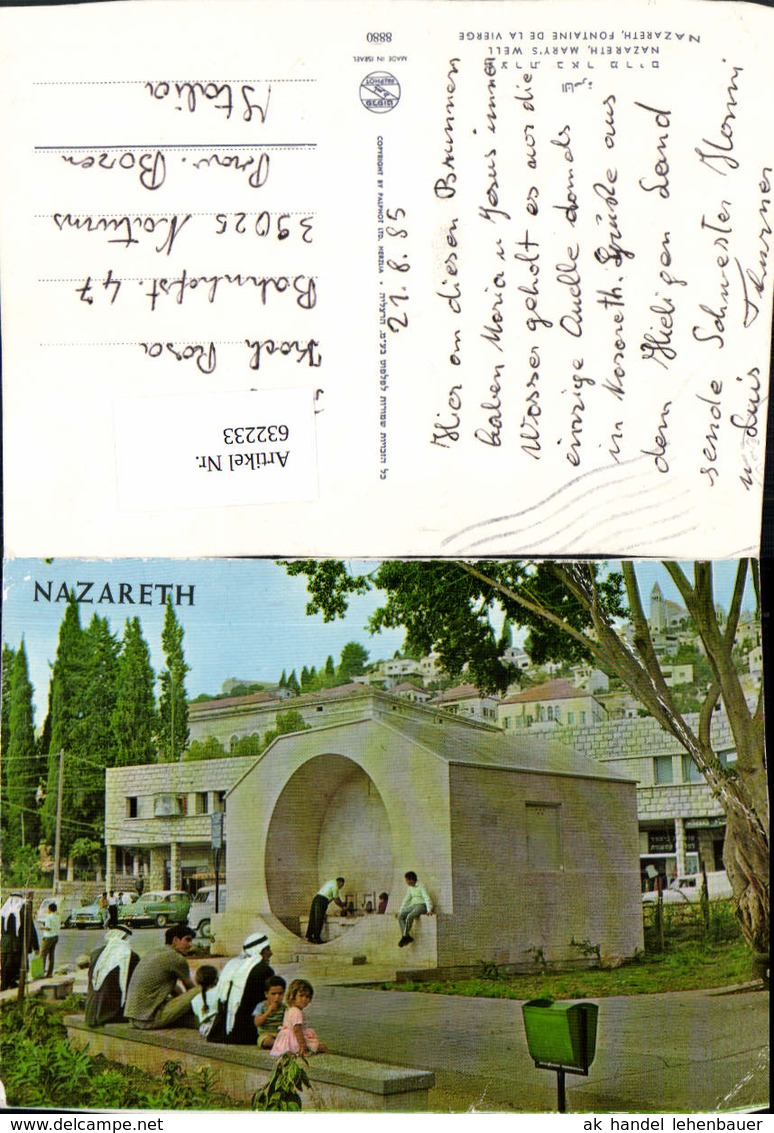 נצרת באר מרים
الناصرة
NAZARETH, MARY'S WELL
NAZARETH, FONTAINE DE LA VIERGE
8880
MADE IN ISRAEL
PALPHOT
פלפוט
COPYRIGHT BY PALPHOT LTD. HERZLIA • כל הזכויות שמורות לפלפוט בע"מ. הרצליה
21. 8. 85
Hier an diesen Brunnen
haben Maria u Jesus immer
Wasser geholt es war die
einzige Quelle damals
in Nazareth. Grüße aus
dem Hieligen Land
sende Schwester Hanni
u Luis Thurner
Koch Rosa
Bahnhofst. 47
39025 Naturns
Prov. Bozen
Italia
Artikel Nr.
632233
NAZARETH
ak handel lehenbauer